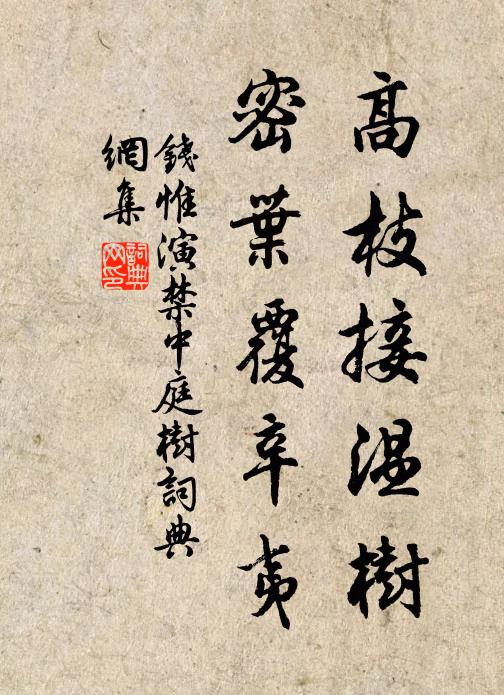 高枝接温樹
密葉覆辛夷
錢惟演禁中庭樹詞典
網集
詞典
网印